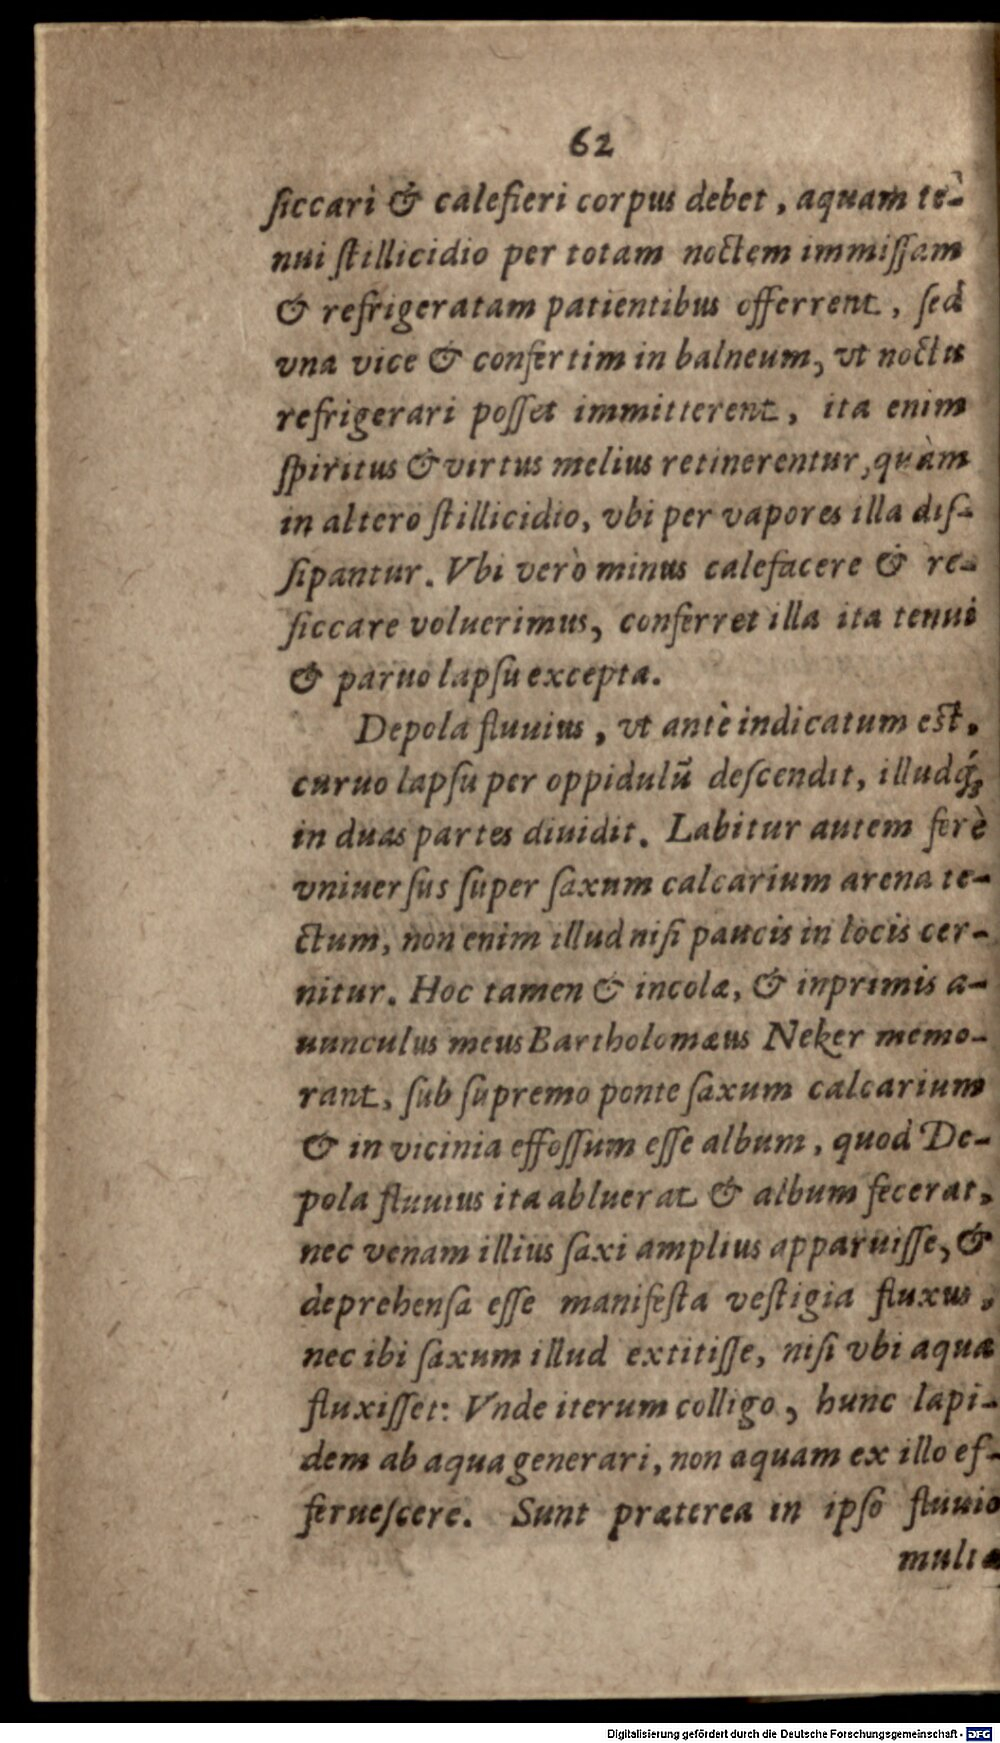 62
ſiccari & calefieri corpus debet, aquam te-
nui ſtillicidio per totam noctem immiſſam
& refrigeratam patientibus offerrent, ſed
vna vice & confertim in balneum, vt noctu
refrigerari poſſet immitterent, ita enim
ſpiritus & virtus melius retinerentur, quàm
in altero ſtillicidio, vbi per vapores illa diſ-
ſipantur. Vbi verò minus calefacere & re-
ſiccare voluerimus, conferret illa ita tenui
& paruo lapſu excepta.
Depola fluuius, vt antè indicatum eſt,
curuo lapſu per oppidulū deſcendit, illudq́;
in duas partes diuidit. Labitur autem ferè
vniuerſus ſuper ſaxum calcarium arena te-
ctum, non enim illud niſi paucis in locis cer-
nitur. Hoc tamen & incolæ, & inprimis a-
uunculus meus Bartholomæus Neker memo-
rant, ſub ſupremo ponte ſaxum calcarium
& in vicinia effoſſum eſſe album, quod De-
pola fluuius ita abluerat & album fecerat,
nec venam illius ſaxi amplius apparuiſſe, &
deprehenſa eſſe manifeſta veſtigia fluxus,
nec ibi ſaxum illud extitiſſe, niſi vbi aqua
fluxiſſet: Vnde iterum colligo, hunc lapi-
dem ab aqua generari, non aquam ex illo ef-
ferueſcere. Sunt præterea in ipſo fluuio
multæ
Digitalisierung gefördert durch die Deutsche Forschungsgemeinschaft - DFG